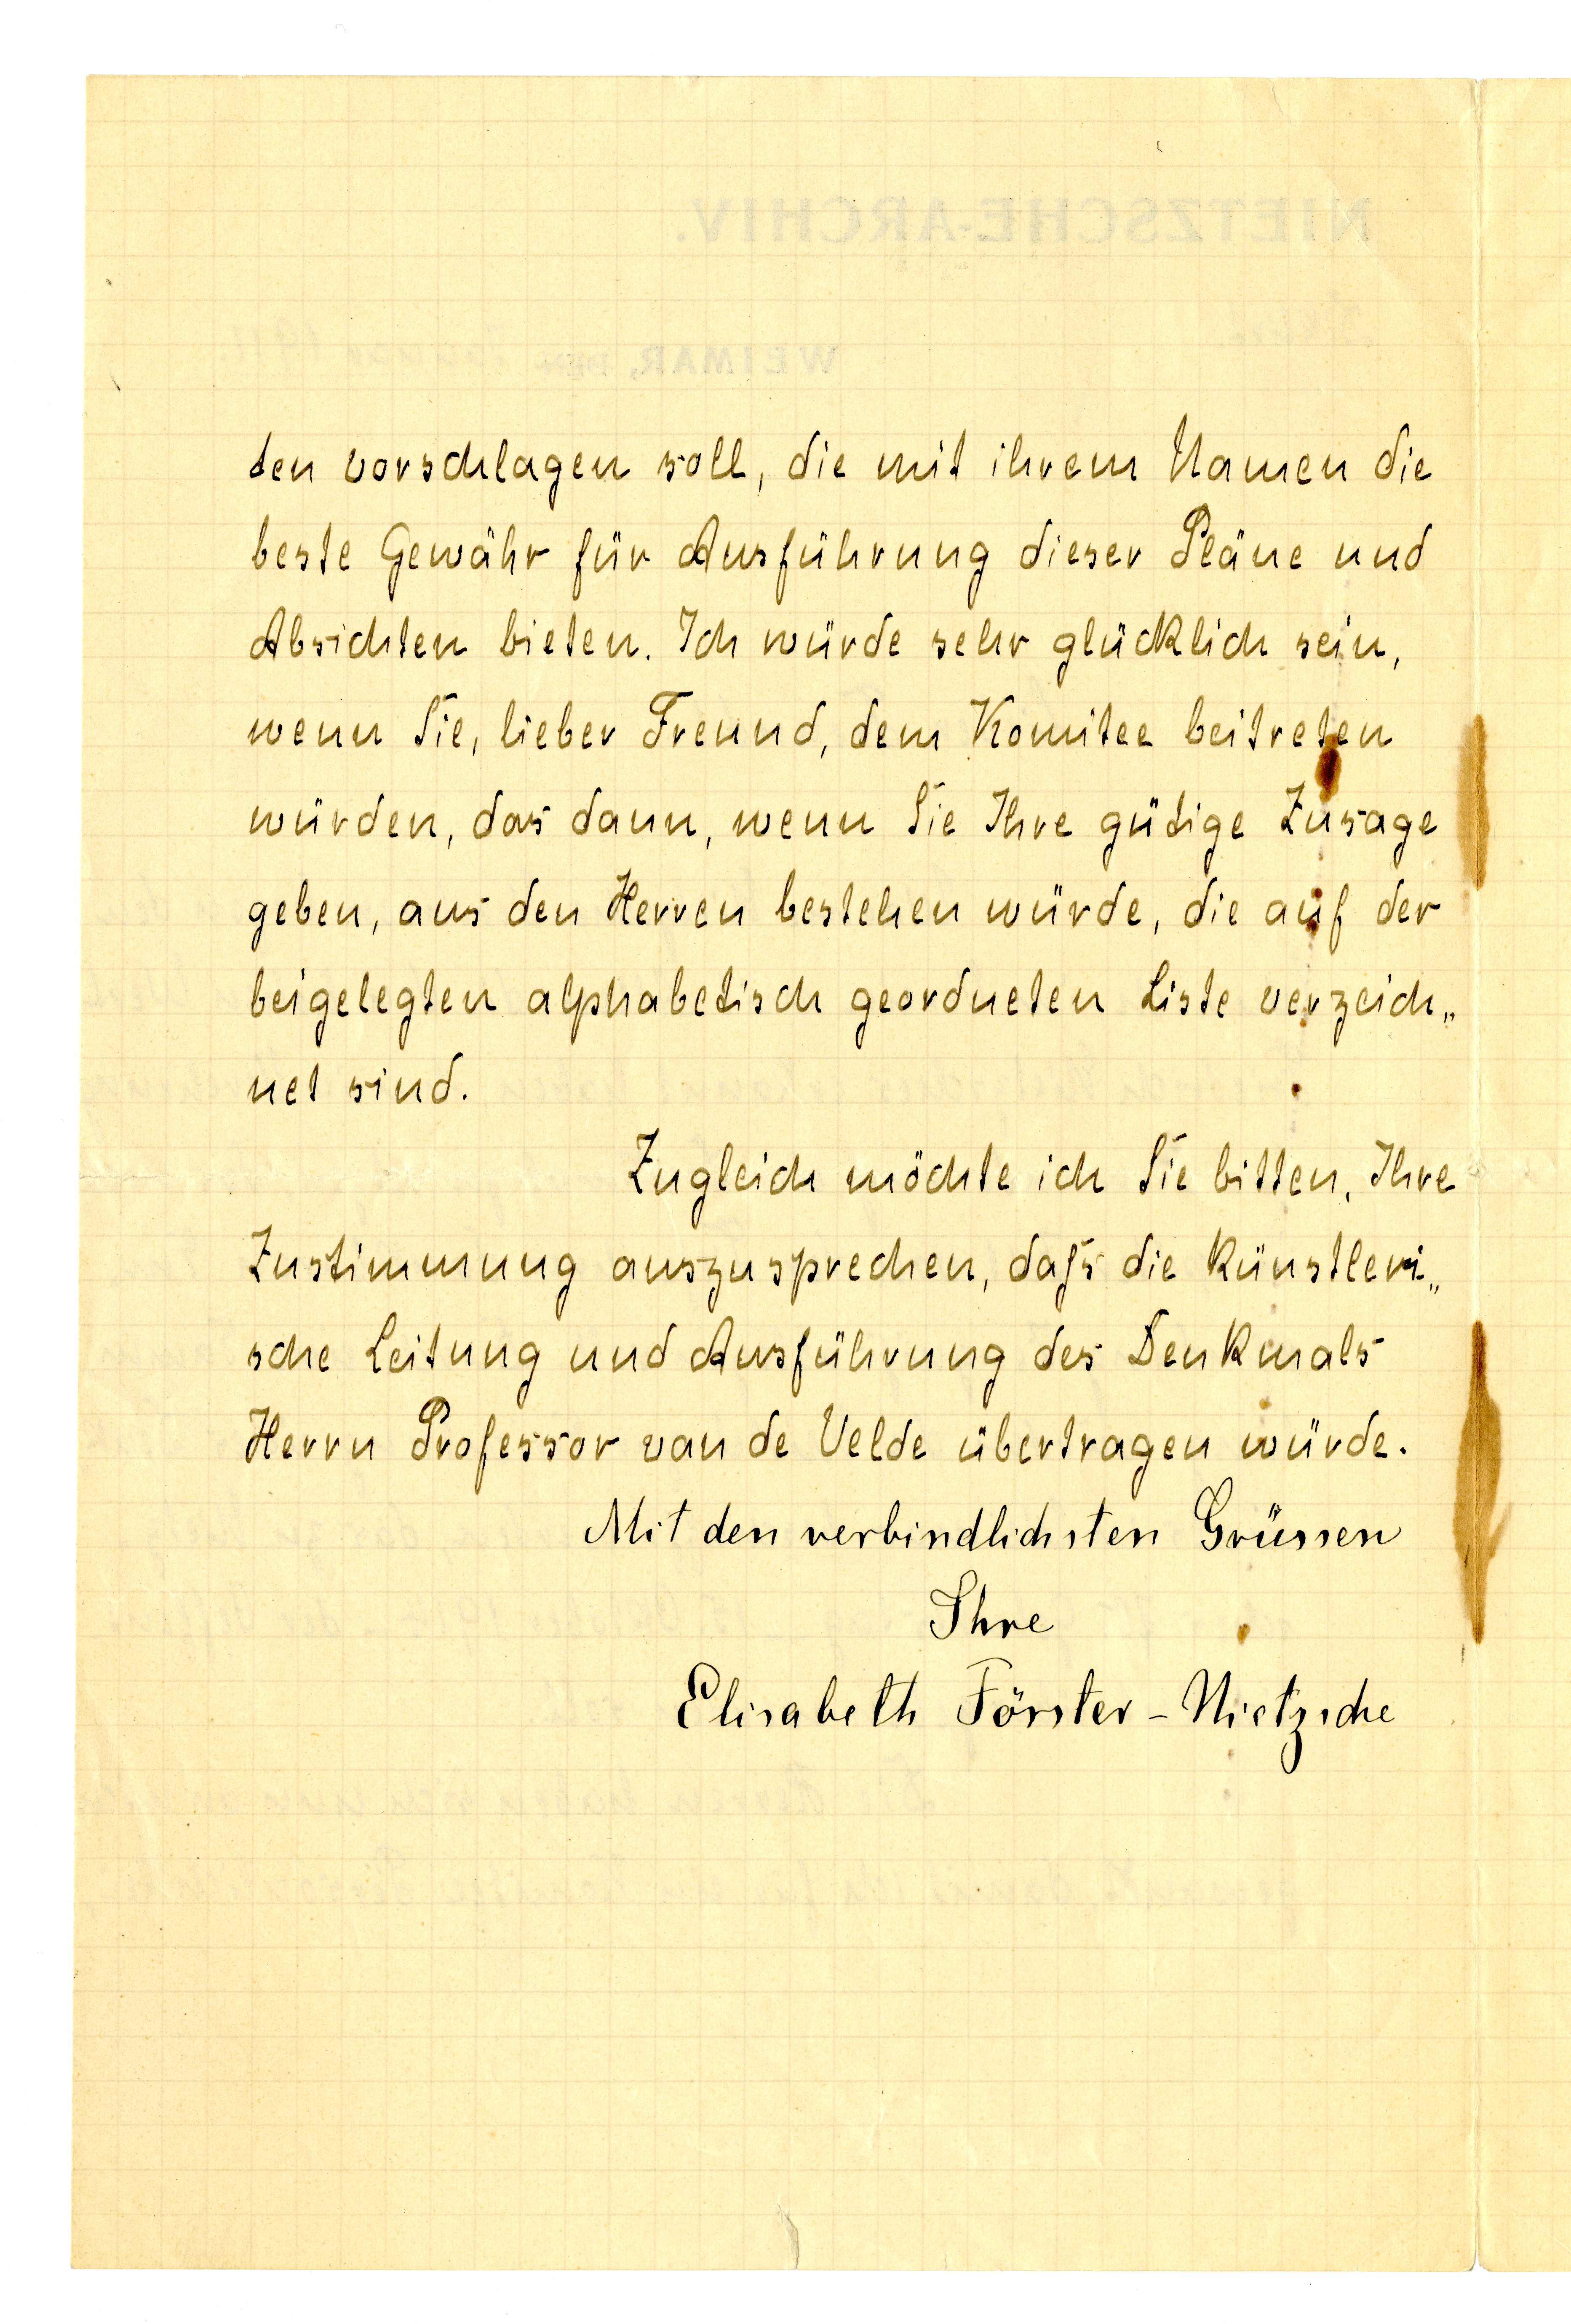 NIETZSCHE-ARCHIV.
WEIMAR, DEN
ten vorschlagen soll, die mit ihrem Namen die
beste Gewähr für Ausführung dieser Pläne und
Absichten bieten. Ich würde sehr glücklich sein,
wenn Sie, lieber Freund, dem Komitee beitreten
würden, das dann, wenn Sie Ihre gütige Zusage
geben, aus den Herren bestehen würde, die auf der
beigelegten alphabetisch geordneten Liste verzeich„
net sind.
Zugleich möchte ich Sie bitten, Ihre
Zustimmung auszusprechen, daſs die künstleri„
sche Leitung und Ausführung des Denkmals
Herrn Professor van de Velde übertragen würde.
Mit den verbindlichsten Grüssen
Ihre
Elisabeth Förster-Nietzsche